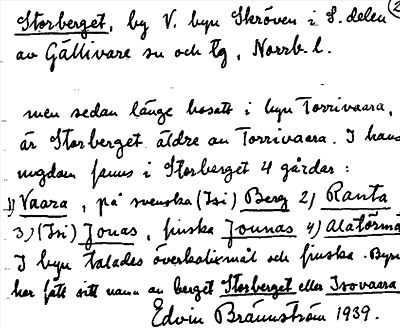 Storberget, by V. byn Skröven i S. delen
av Gällivare sn och tg, Norrb. l.
men sedan länge bosatt i byn Torrivaara,
är Storberget äldre än Torrivaara. I hans
ungdom fanns i Storberget 4 gårdar:
1) Vaara, på svenska (Isi) Berg 2) Ranta
3) (Isi) Jonas, finska Jounas 4) Alatörmä
I byn talades överkalixmål och finska. Byn
har fått sitt namn av berget Storberget eller Isovaara
Edvin Brännström 1939.